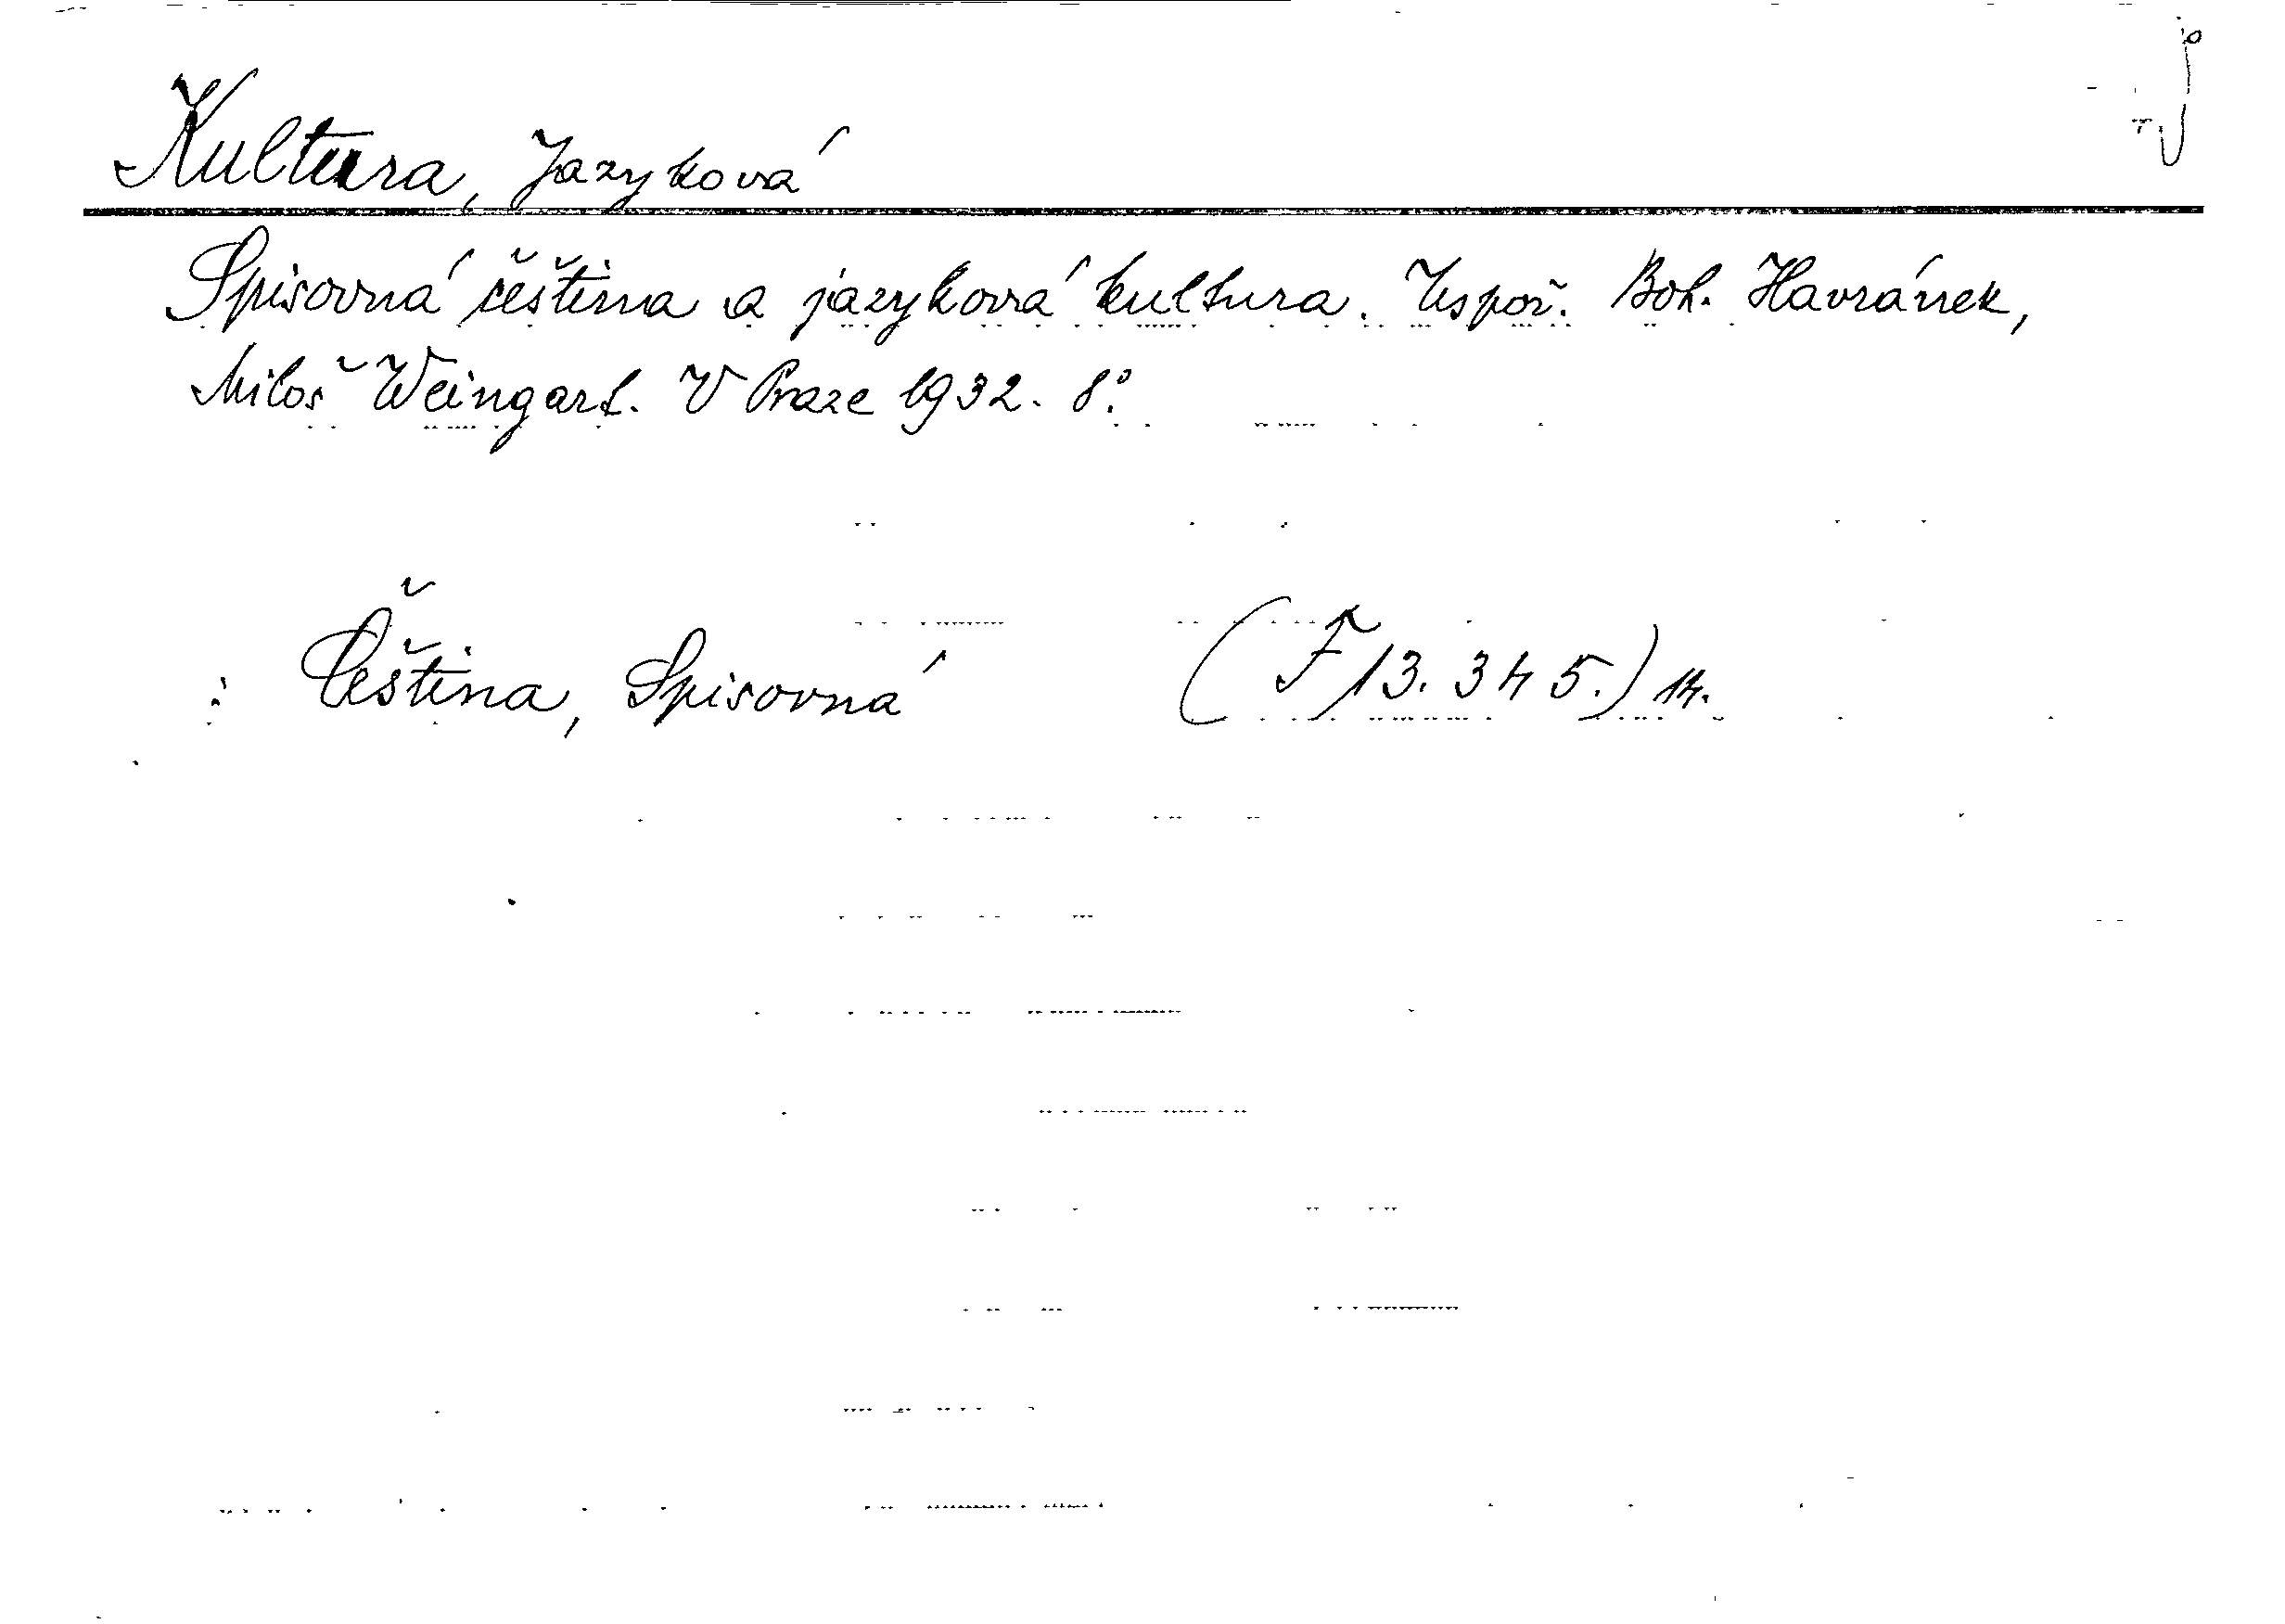 Kultura, Jazyková
Spisovná čeština a jazyková kultura. Uspoř. Boh. Havránek,
Miloš Weingart. V Praze 1932. 8°.
: Čeština, Spisovná (F 13.345.)